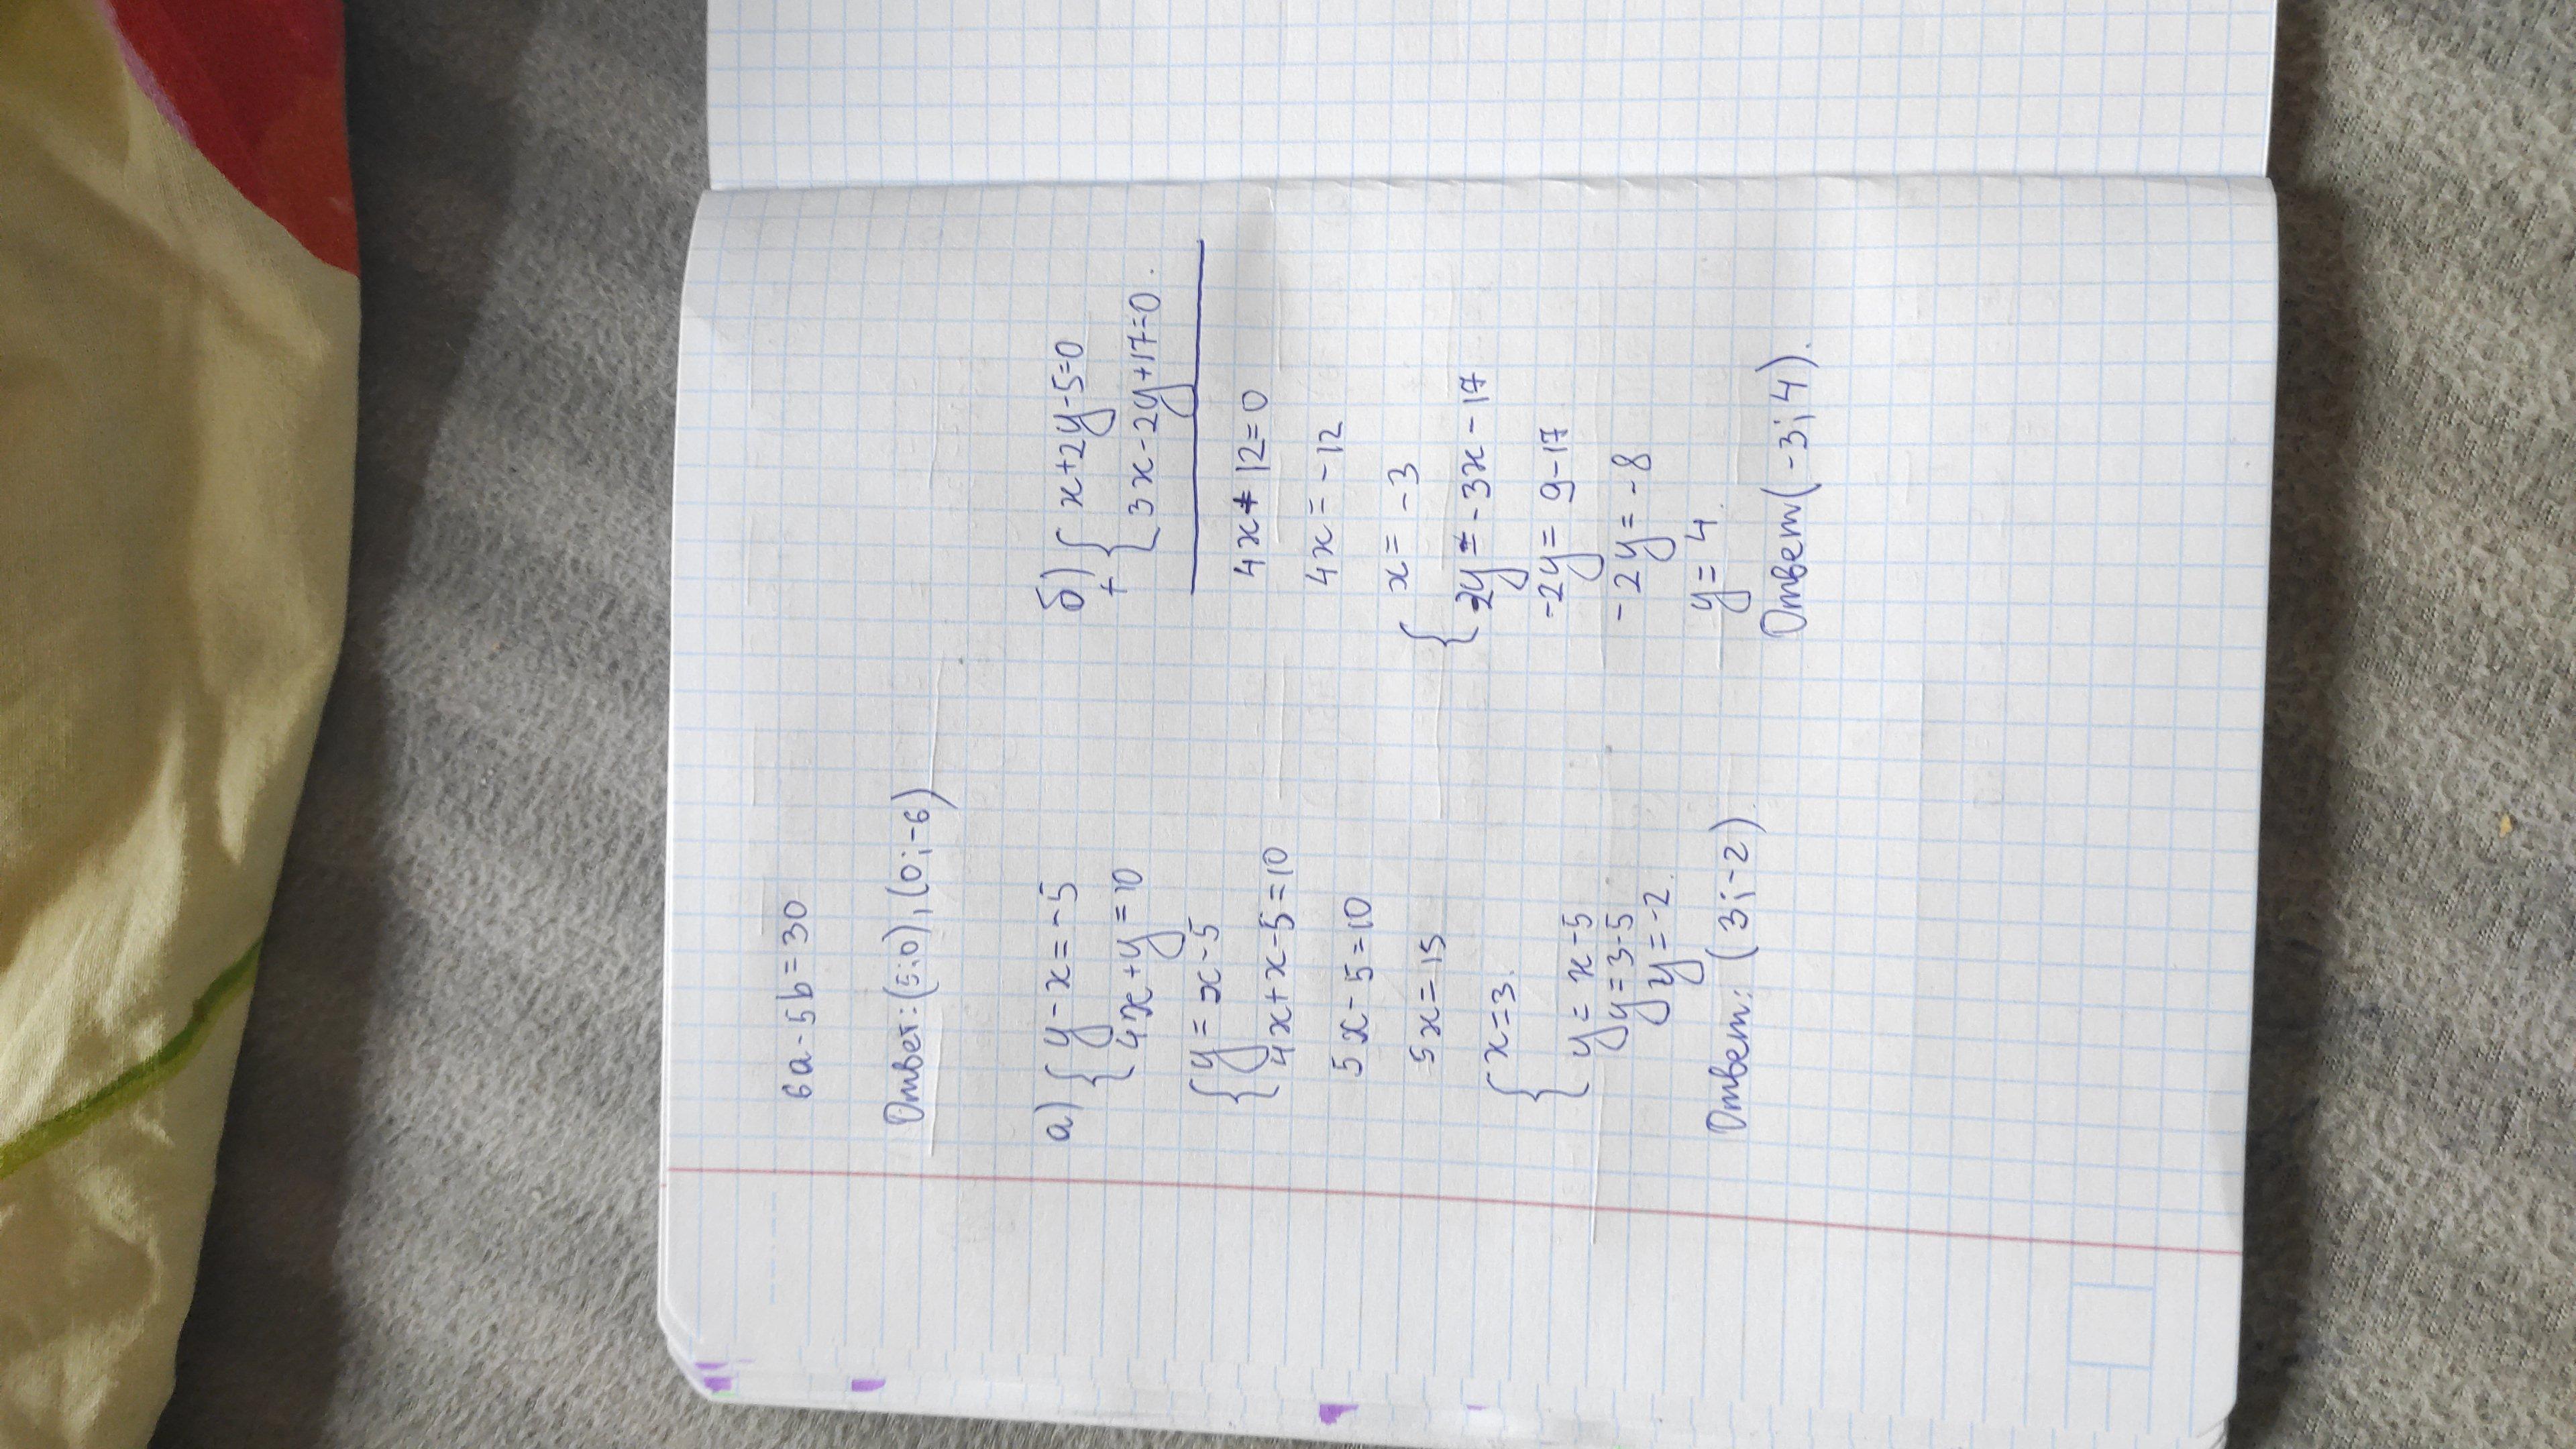 6a-5b=30
Ответ: (5;0), (0;-6)
а) { y-x=-5
4x+y=10
{ y=x-5
4x+x-5=10
5x-5=10
5x=15
{ x=3.
y=x-5
y=3-5
y=-2.
Ответ: (3;-2).
б) { x+2y-5=0
+ 3x-2y+17=0.
4x+12=0
4x=-12
{ x=-3
-2y=-3x-17
-2y=9-17
-2y=-8
y=4.
Ответ (-3;4).